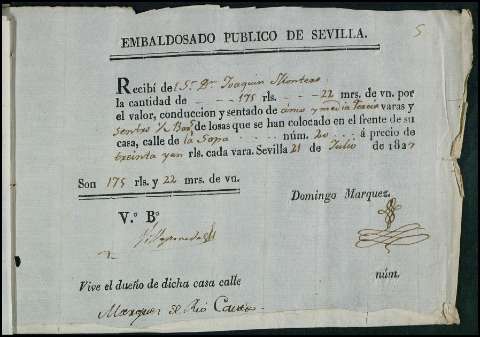 5
EMBALDOSADO PUBLICO DE SEVILLA.
Recibí de l Sr. Dn. Joaquin Montero
la cantidad de - - - 175 rls. - - - 22 mrs. de vn. por
el valor, conduccion y sentado de cinco y media varas y
de losas que se han colocado en el frente de su
casa, calle de la Sopa . . . . . núm. 20 . . . á precio de
treinta y un rls. cada vara. Sevilla 21 de Julio de 1827
Son 175 rls. y 22 mrs. de vn.
Domingo Marquez.
V.º Bº
Vive el dueño de dicha casa calle núm.
Marques del Rio